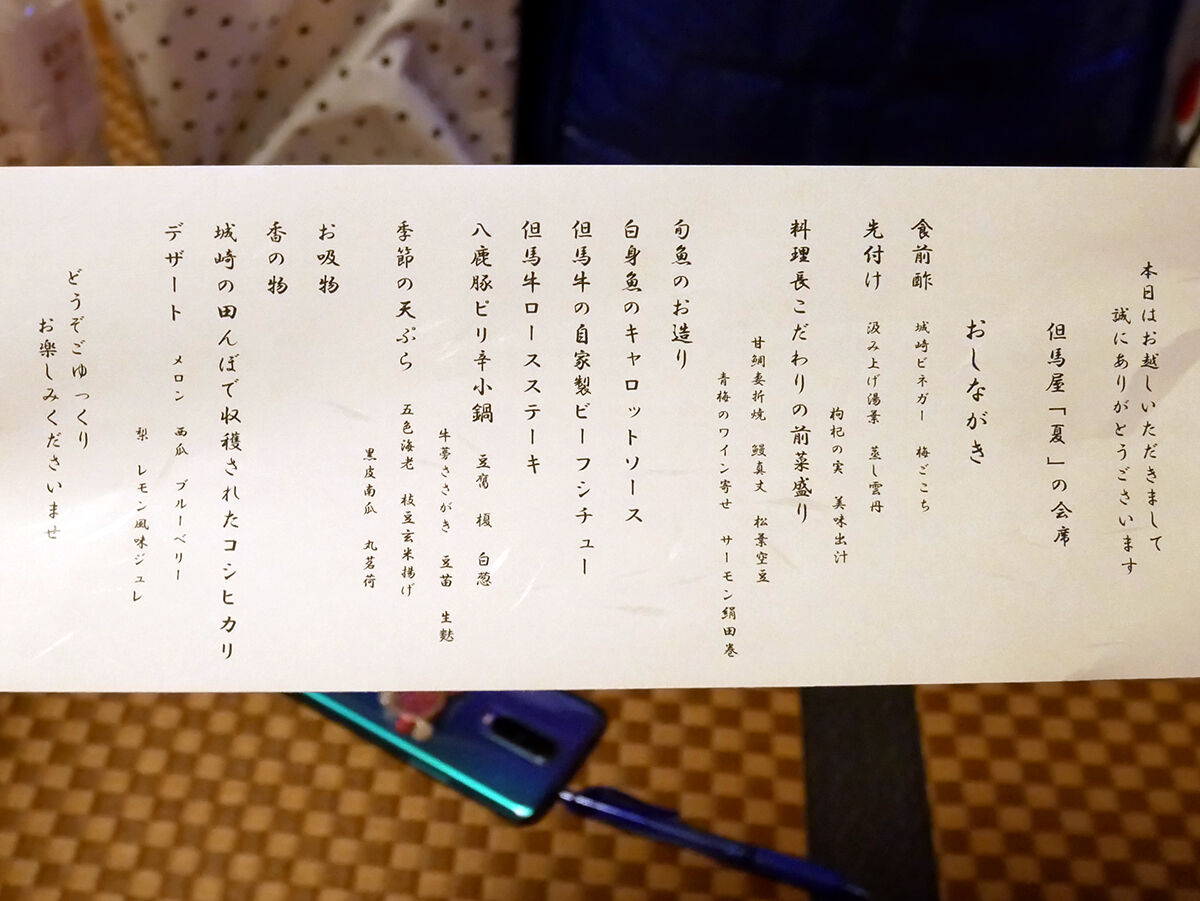 本日はお越しいただきまして
誠にありがとうございます
但馬屋「夏」の会席
おしながき
食前酢 城崎ビネガー 梅ごこち
先付け 汲み上げ湯葉 蒸し雲丹
枸杞の実 美味出汁
料理長こだわりの前菜盛り
甘鯛妻折焼 鰻真丈 松葉空豆
青梅のワイン寄せ サーモン絹田巻
旬魚のお造り
白身魚のキャロットソース
但馬牛の自家製ビーフシチュー
但馬牛ロースステーキ
八鹿豚ピリ辛小鍋 豆腐 榎 白葱
牛蒡ささがき 豆苗 生麩
季節の天ぷら 五色海老 枝豆玄米揚げ
里皮南瓜 丸茗荷
お吸物
香の物
城崎の田んぼで収穫されたコシヒカリ
デザート メロン 西瓜 ブルーベリー
梨 レモン風味ジュレ
どうぞごゆっくり
お楽しみくださいませ